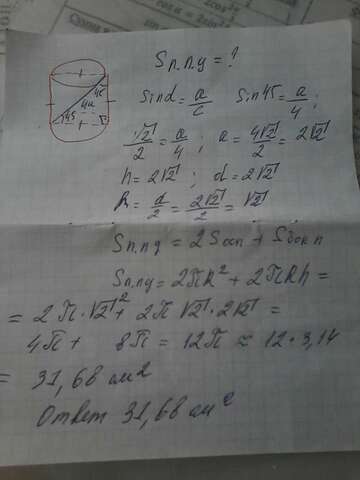 Sп.п.ц = ?
45
4см
45
Sin d = a/c  Sin 45 = a/4 ;
√2/2 = a/4 ; a = 4√2/2 = 2√2
h = 2√2 ; d = 2√2
R = d/2 = 2√2/2 = √2
Sп.пц = 2 Sосн + Sбок п
Sп.пц = 2πR² + 2πRh =
= 2π·√2² + 2π√2·2√2 =
4π + 8π = 12π ≈ 12·3,14
= 31,68 см²
Ответ 31,68 см²